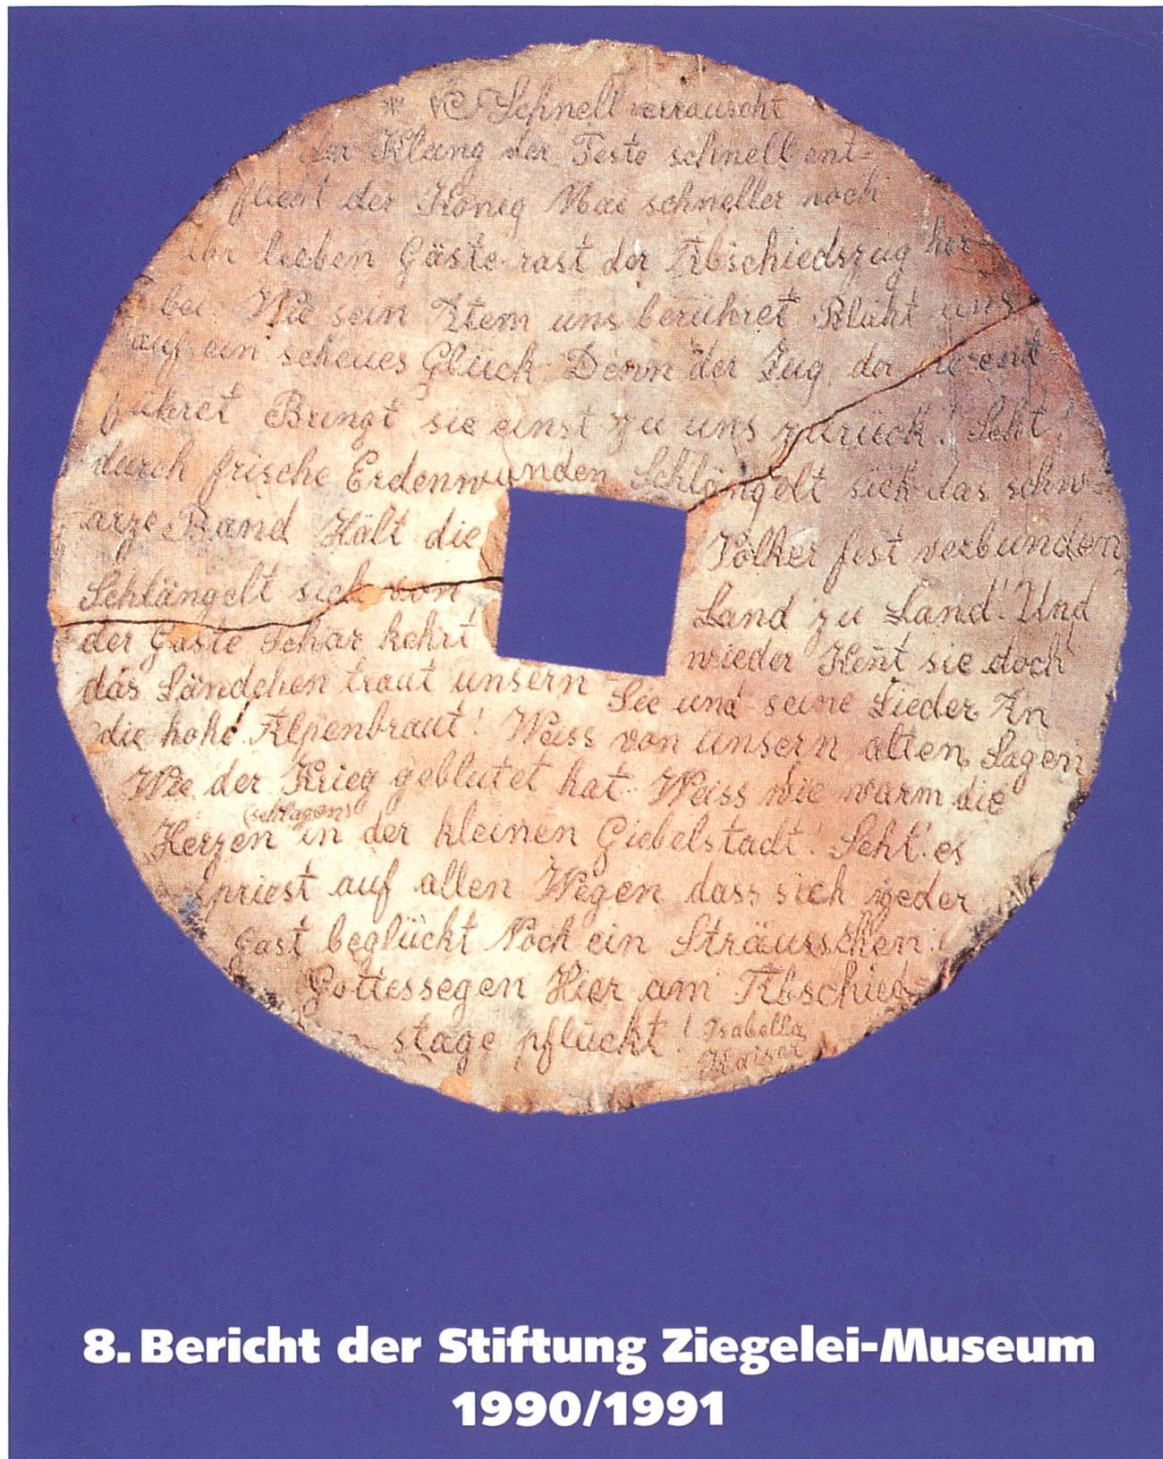 Schnell verrauscht
der Klang der Feste schnell ent=
flieht der König Mai schneller noch
ihr lieben Gäste rast der Abschiedszug her=
bei. Wie sein Atem uns berühret Blüht uns
auf ein scheues Glück Denn der Zug, der sie ent=
führet Bringt sie einst zu uns zurück! Seht!
durch frische Erdenwunden Schlängelt sich das schw=
arze Band Hält die Völker fest verbunden
Schlängelt sich von Land zu Land! Und
der Gäste Schar kehrt wieder Kent sie doch
das Ländchen traut unsern See und seine Lieder An
die hohe Alpenbraut! Weiss von unsern alten Sagen
Wie der Krieg geblutet hat. Weiss wie warm die
(schlagen)
Herzen in der kleinen Giebelstadt! Seht! es
spriest auf allen Wegen dass sich jeder
Gast beglückt Noch ein Sträusschen!
Gottessegen Hier am Abschied=
stage pflückt! Isabella
Kaiser
8. Bericht der Stiftung Ziegelei-Museum
1990/1991